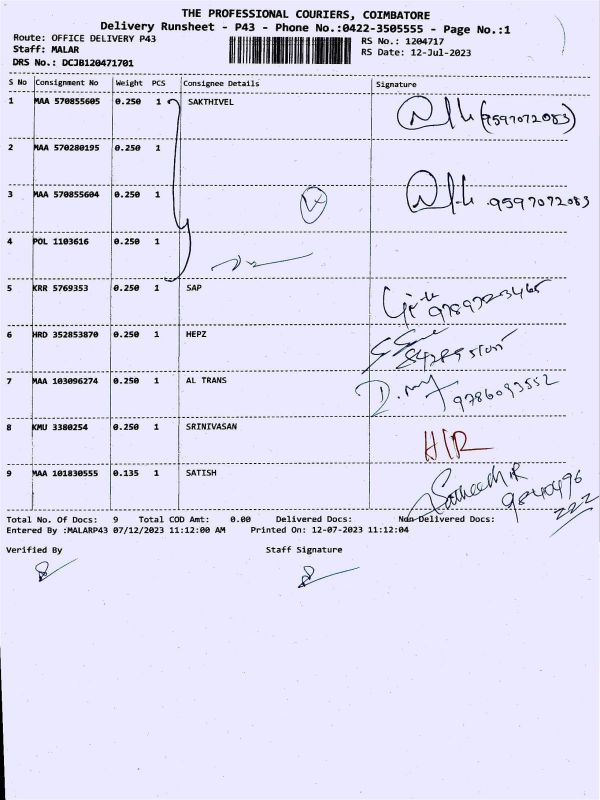 THE PROFESSIONAL COURIERS, COIMBATORE
Delivery Runsheet - P43 - Phone No.:0422-3505555 - Page No.:1
Route: OFFICE DELIVERY P43
RS No.: 1204717
Staff: MALAR
RS Date: 12-Jul-2023
DRS No.: DCJB120471701
S No Consignment No Weight PCS Consignee Details Signature
1 MAA 570855605 0.250 1 SAKTHIVEL (9597072083)
2 MAA 570280195 0.250 1
3 MAA 570855604 0.250 1 9597072083
4 POL 1103616 0.250 1
5 KRR 5769353 0.250 1 SAP
6 HRD 352853870 0.250 1 HEPZ
7 MAA 103096274 0.250 1 AL TRANS 9786093552
8 KMU 3380254 0.250 1 SRINIVASAN H/R
9 MAA 101830555 0.135 1 SATISH
9840496
222
Total No. Of Docs: 9 Total COD Amt: 0.00 Delivered Docs: Non Delivered Docs:
Entered By :MALARP43 07/12/2023 11:12:00 AM Printed On: 12-07-2023 11:12:04
Verified By Staff Signature